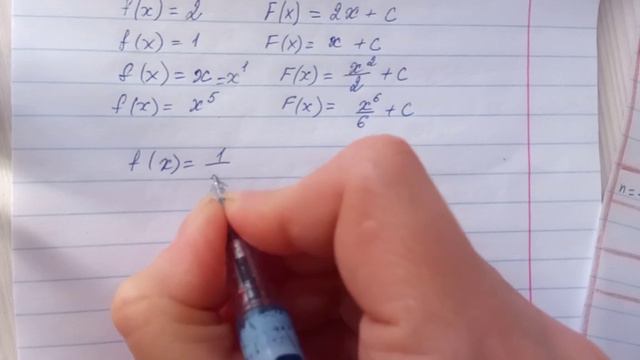 f(x) = 2 F(x) = 2x + C
f(x) = 1 F(x) = x + C
f(x) = x = x¹ F(x) = x²/2 + C
f(x) = x⁵ F(x) = x⁶/6 + C
f(x) = 1/
n =